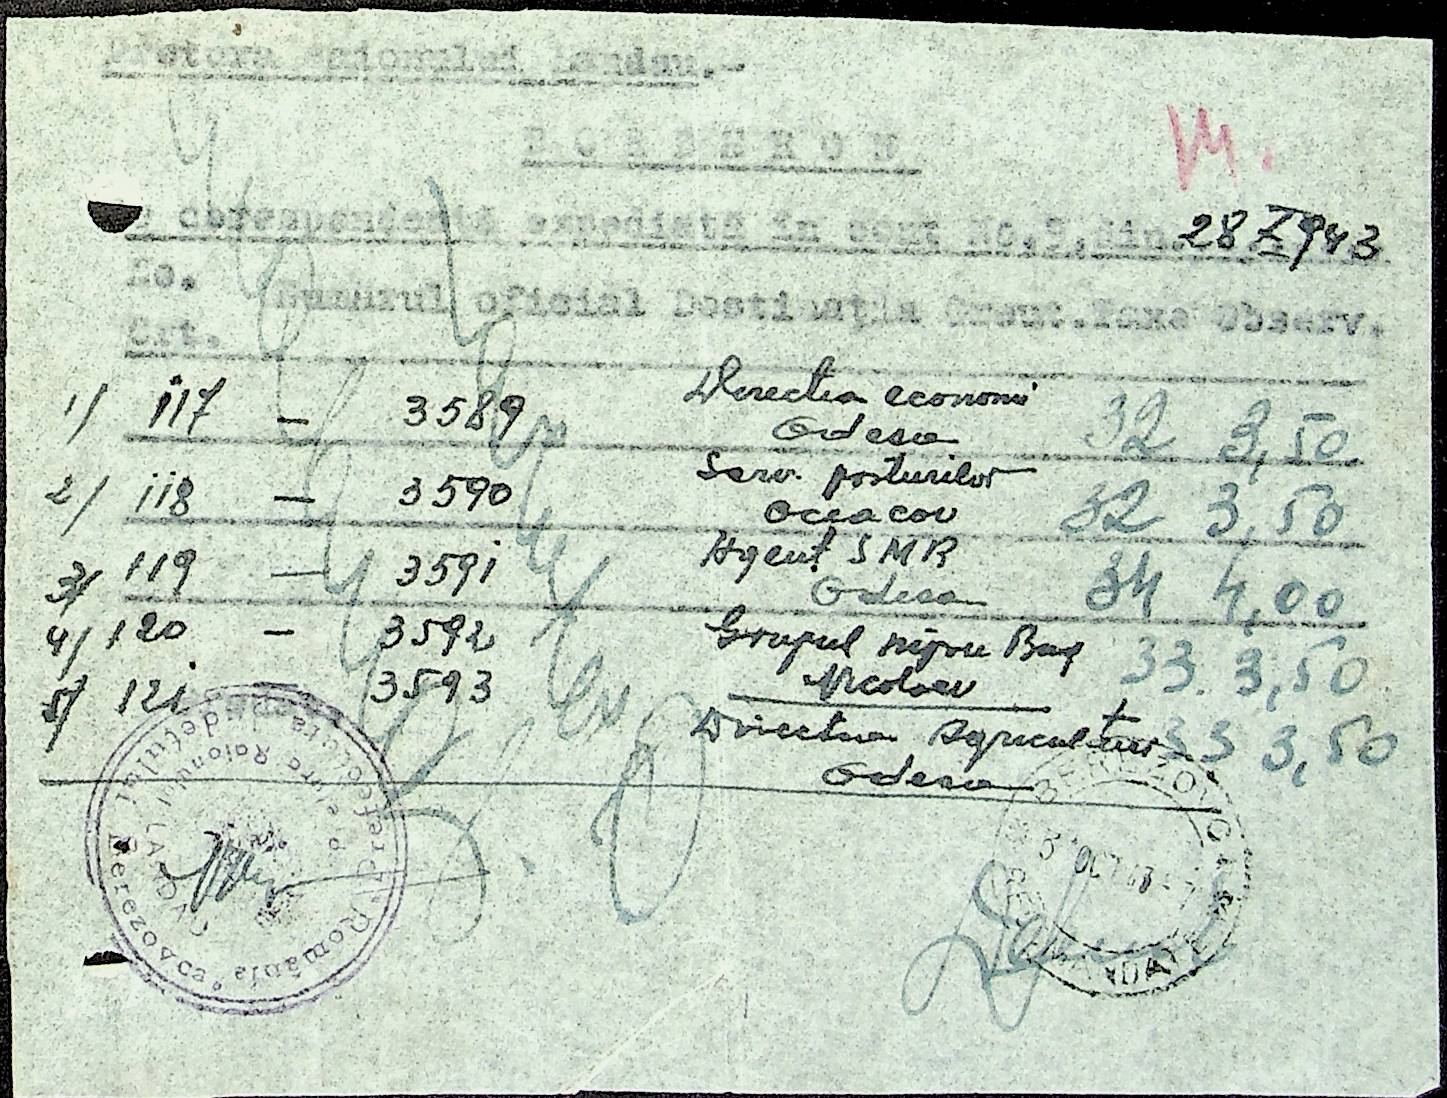 Pretura Raionului Landau.-
BORDEROU
de corespondentă expediată în cont No.9, din 28 X 943
No. Numărul oficial Destinația Greut. Taxa Observ.
Crt.
1/ 117 — 3589 Directia economi 32 3,50
Odesa
2/ 118 — 3590 Serv. posturilor 32 3,50
Oceacov
3/ 119 — 3591 Agent SMR 34 4,00
Odesa
4/ 120 — 3592 Grupul 33. 3,50
Nicolaev
5/ 121 3593 Directia Agriculturi 33 3,50
Odesa
România Prefectura Județului Berezovca
Pretura Raionului LANDAU
BEREZOVCA
OCT
MANDATE